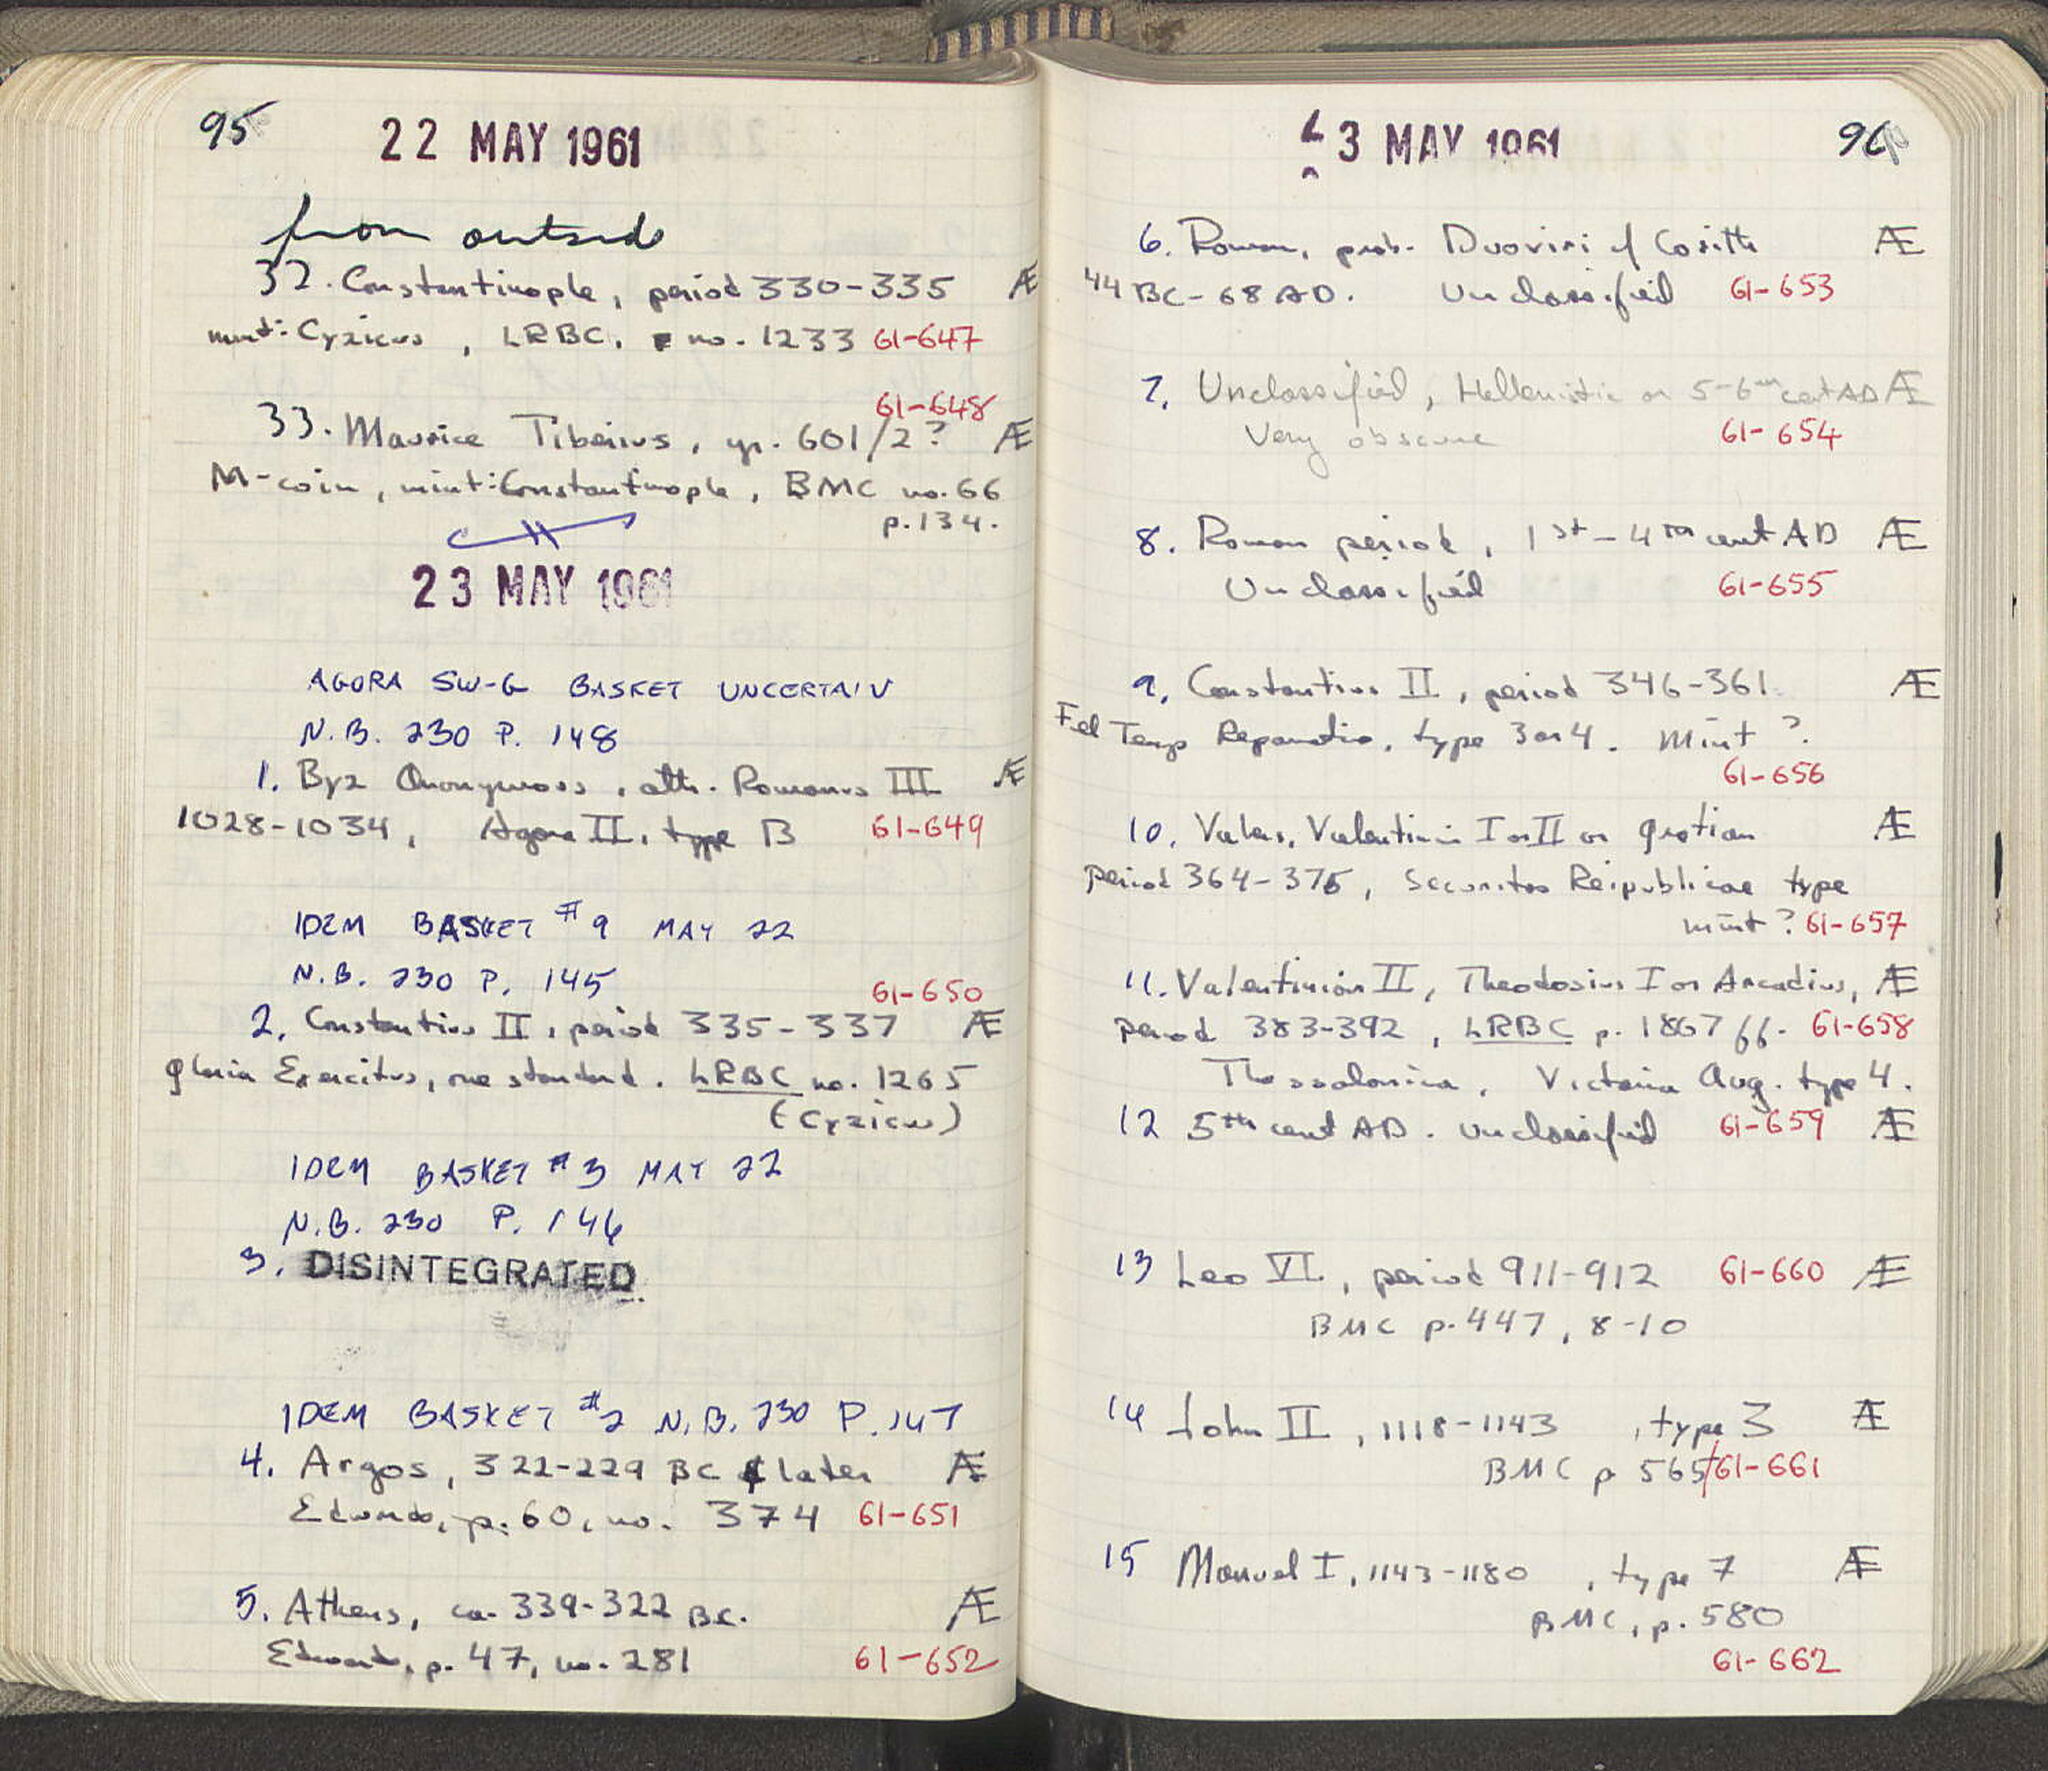 95
22 MAY 1961
from outside
32. Constantinople, period 330-335 Æ
mint: Cyzicus, LRBC, no. 1233 61-647
61-648
33. Maurice Tiberius, yr. 601/2? Æ
M-coin, mint: Constantinople, BMC no. 66
p. 134.
23 MAY 1961
AGORA SW-G BASKET UNCERTAIN
N.B. 230 P. 148
1. Byz Anonymous, attr. Romanus III Æ
1028-1034, Agora II, type B 61-649
IDEM BASKET #9 MAY 22
N.B. 230 P. 145
61-650
2. Constantius II, period 335-337 Æ
Gloria Exercitus, one standard. LRBC no. 1265
(Cyzicus)
IDEM BASKET #3 MAY 22
N.B. 230 P. 146
3. DISINTEGRATED
IDEM BASKET #2 N.B. 230 P. 147
4. Argos, 322-229 BC & later Æ
Edwards, p. 60, no. 374 61-651
5. Athens, ca. 339-322 BC. Æ
Edwards, p. 47, no. 281
61-652
23 MAY 1961
96
6. Roman, prob. Duoviri of Corinth Æ
44 BC-68 AD. Unclassified 61-653
7. Unclassified, Hellenistic or 5-6th cent AD Æ
Very obscure 61-654
8. Roman period, 1st-4th cent AD Æ
Unclassified 61-655
9. Constantius II, period 346-361 Æ
Fel Temp Reparatio, type 3 or 4. Mint?
61-656
10. Valens, Valentinian I or II or Gratian Æ
period 364-375, Securitas Reipublicae type
mint? 61-657
11. Valentinian II, Theodosius I or Arcadius, Æ
period 383-392, LRBC p. 1867 ff. 61-658
Thessalonica, Victoria Aug. type 4.
12 5th cent AD. unclassified 61-659 Æ
13 Leo VI, period 911-912 61-660 Æ
BMC p. 447, 8-10
14 John II, 1118-1143, type 3 Æ
BMC p 565 61-661
15 Manuel I, 1143-1180, type 7 Æ
BMC, p. 580
61-662